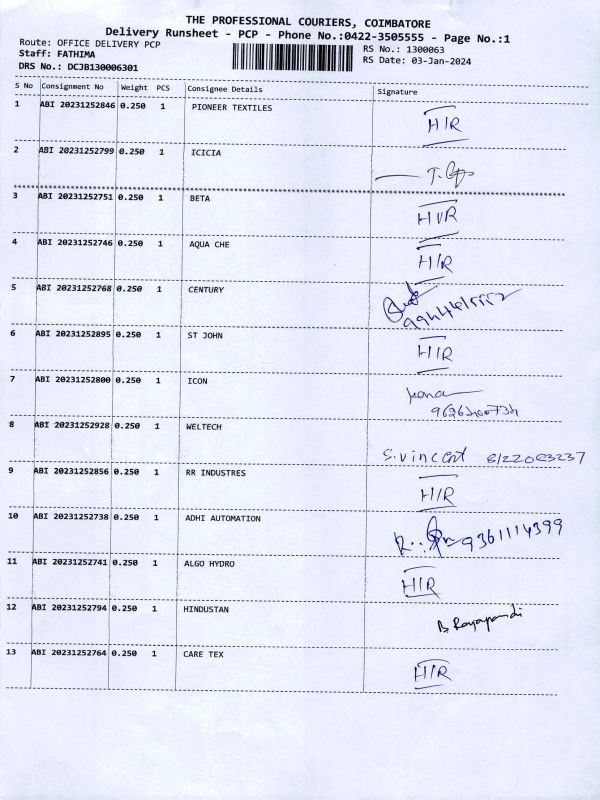 THE PROFESSIONAL COURIERS, COIMBATORE
Delivery Runsheet - PCP - Phone No.:0422-3505555 - Page No.:1
Route: OFFICE DELIVERY PCP RS No.: 1300063
Staff: FATHIMA RS Date: 03-Jan-2024
DRS No.: DCJB130006301
S No Consignment No Weight PCS Consignee Details Signature
1 ABI 20231252846 0.250 1 PIONEER TEXTILES H/R
2 ABI 20231252799 0.250 1 ICICIA
3 ABI 20231252751 0.250 1 BETA H/R
4 ABI 20231252746 0.250 1 AQUA CHE H/R
5 ABI 20231252768 0.250 1 CENTURY
6 ABI 20231252895 0.250 1 ST JOHN H/R
7 ABI 20231252800 0.250 1 ICON
8 ABI 20231252928 0.250 1 WELTECH S.vincent
9 ABI 20231252856 0.250 1 RR INDUSTRES H/R
10 ABI 20231252738 0.250 1 ADHI AUTOMATION 9361114399
11 ABI 20231252741 0.250 1 ALGO HYDRO H/R
12 ABI 20231252794 0.250 1 HINDUSTAN B Rayapandi
13 ABI 20231252764 0.250 1 CARE TEX H/R